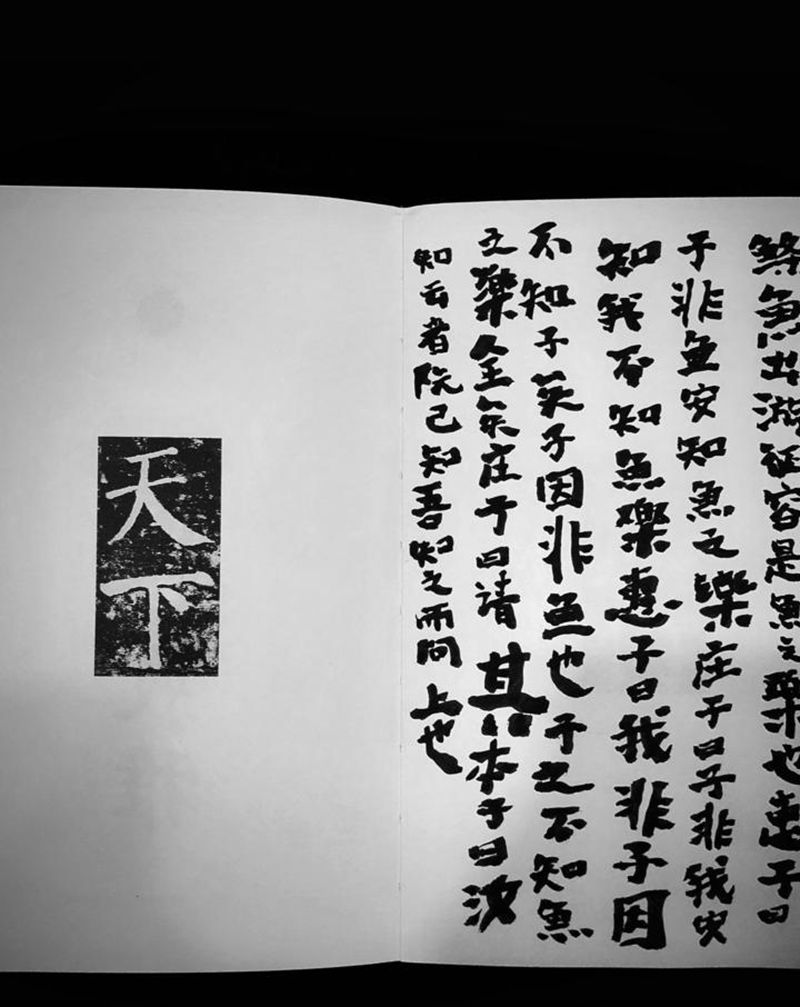 鯈魚出游從容是魚之樂也惠子曰
子非魚安知魚之樂庄子曰子非我安
知我不知魚樂惠子曰我非子因
不知子矣子因非魚也子之不知魚
之樂全矣庄子曰請其本子曰汝
知云者既已知吾知之而問上也
天下